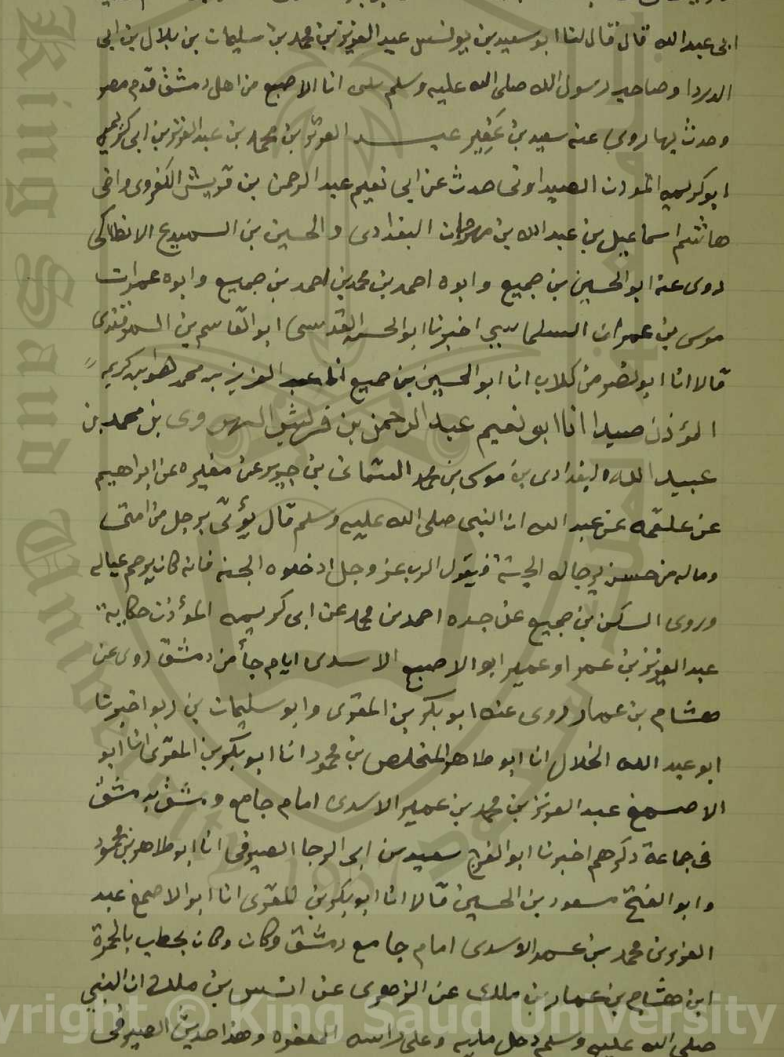 ابى عبد الله قال قال لنا ابو سعيد بن يونس عبد العزيز بن محمد بن سليمان بن بلال بن ابى
الدردا وصاحب رسول الله صلى الله عليه وسلم يكنى ابا الاصبع من اهل دمشق قدم مصر
وحدث بها روى عنه سعيد بن عفير عبد العزيز بن محمد بن عبد العزيز بن ابى كريمه
ابو كريمه الموذن الصيداوى حدث عن ابى نعيم عبد الرحمن بن قريش الهروى وابى
هاشم اسماعيل بن عبد الله بن مهرجان البغدادى والحسين بن السميدع الانطاكى
روى عنه ابو الحسين بن جميع وابوه احمد بن محمد بن احمد بن جميع وابوه عمران
موسى بن عمران السلماسي اخبرنا ابو الحسن ابو القاسم بن السمرقندى
قالا انا ابو نصر من كلاب انا ابو الحسين بن جميع انا عبد العزيز بن محمد هو ابو كريمه
المؤذن صيدا انا ابو نعيم عبد الرحمن بن قريش الهروى بن محمد بن
عبيد الله البغدادى بن موسى بن محمد بن جرير عن مغيره عن ابراهيم
عن علقمه عن عبد الله ان النبى صلى الله عليه وسلم قال يؤتى برجل من امتى
وماله من حسنه يرجا له الجنة فيقول الرب عز وجل ادخلوه الجنه فانه كان يرحم عياله
وروى السكن بن جميع عن جده احمد بن محمد عن ابى كريمه المؤذن حكايه
عبد العزيز بن عمر او عمير ابو الاصبع الاسدى امام جامع دمشق روى عن
هشام بن عمار روى عنه ابو بكر بن المقرى وابو سليمان بن زبر اخبرنا
ابو عبد الله الخلال انا ابو طاهر المخلص بن محمود انا ابو بكر بن المقرى انا ابو
الاصبغ عبد العزيز بن محمد بن عمير الاسدى امام جامع دمشق بدمشق
فى جماعة ذكرهم اخبرنا ابو الفرج سعيد بن ابى الرجا الصيرفى انا ابو طاهر بن محمود
وابو الفتح مسعود بن الحسين قالا انا ابو بكر بن المقرى انا ابو الاصبغ عبد
العزيز بن محمد بن عمير الاسدى امام جامع دمشق وكان وكان يخطب بالحمرة
ابن هشام بن عمار بن ملك عن الزهرى عن انس بن ملك ان النبي
صلى الله عليه وسلم دخل مكه وعلى راسه المغفره وهذا حديث الصيرفى
King Saud University
1957
Copyright © King Saud University